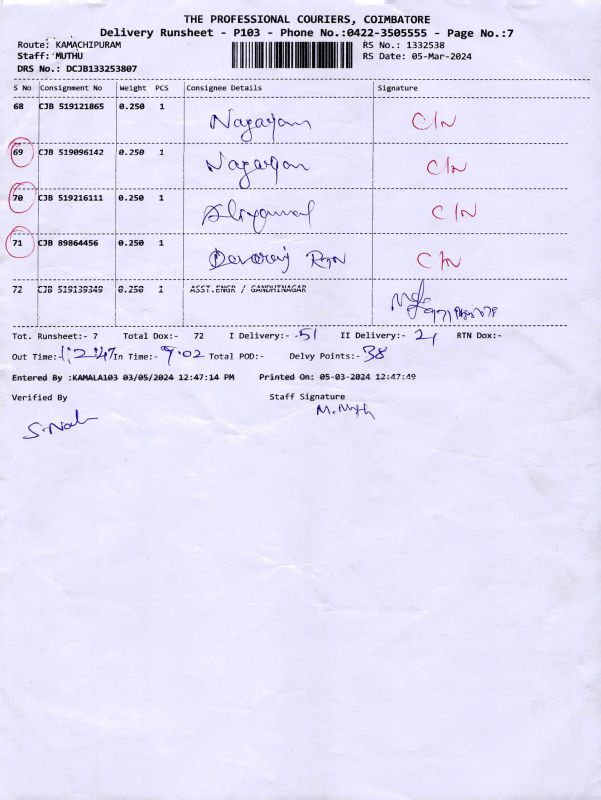 THE PROFESSIONAL COURIERS, COIMBATORE
Delivery Runsheet - P103 - Phone No.:0422-3505555 - Page No.:7
Route: KAMACHIPURAM RS No.: 1332538
Staff: MUTHU RS Date: 05-Mar-2024
DRS No.: DCJB133253807
S No Consignment No Weight PCS Consignee Details Signature
68 CJB 519121865 0.250 1 C/N
69 CJB 519096142 0.250 1 C/N
70 CJB 519216111 0.250 1 C/N
71 CJB 89864456 0.250 1 C/N
72 CJB 519139349 0.250 1 ASST.ENGR / GANDHINAGAR
Tot. Runsheet:- 7 Total Dox:- 72 I Delivery:- 51 II Delivery:- RTN Dox:-
Out Time:- In Time:- 9.02 Total POD:- Delvy Points:- 38
Entered By :KAMALA103 03/05/2024 12:47:14 PM Printed On: 05-03-2024 12:47:49
Verified By Staff Signature